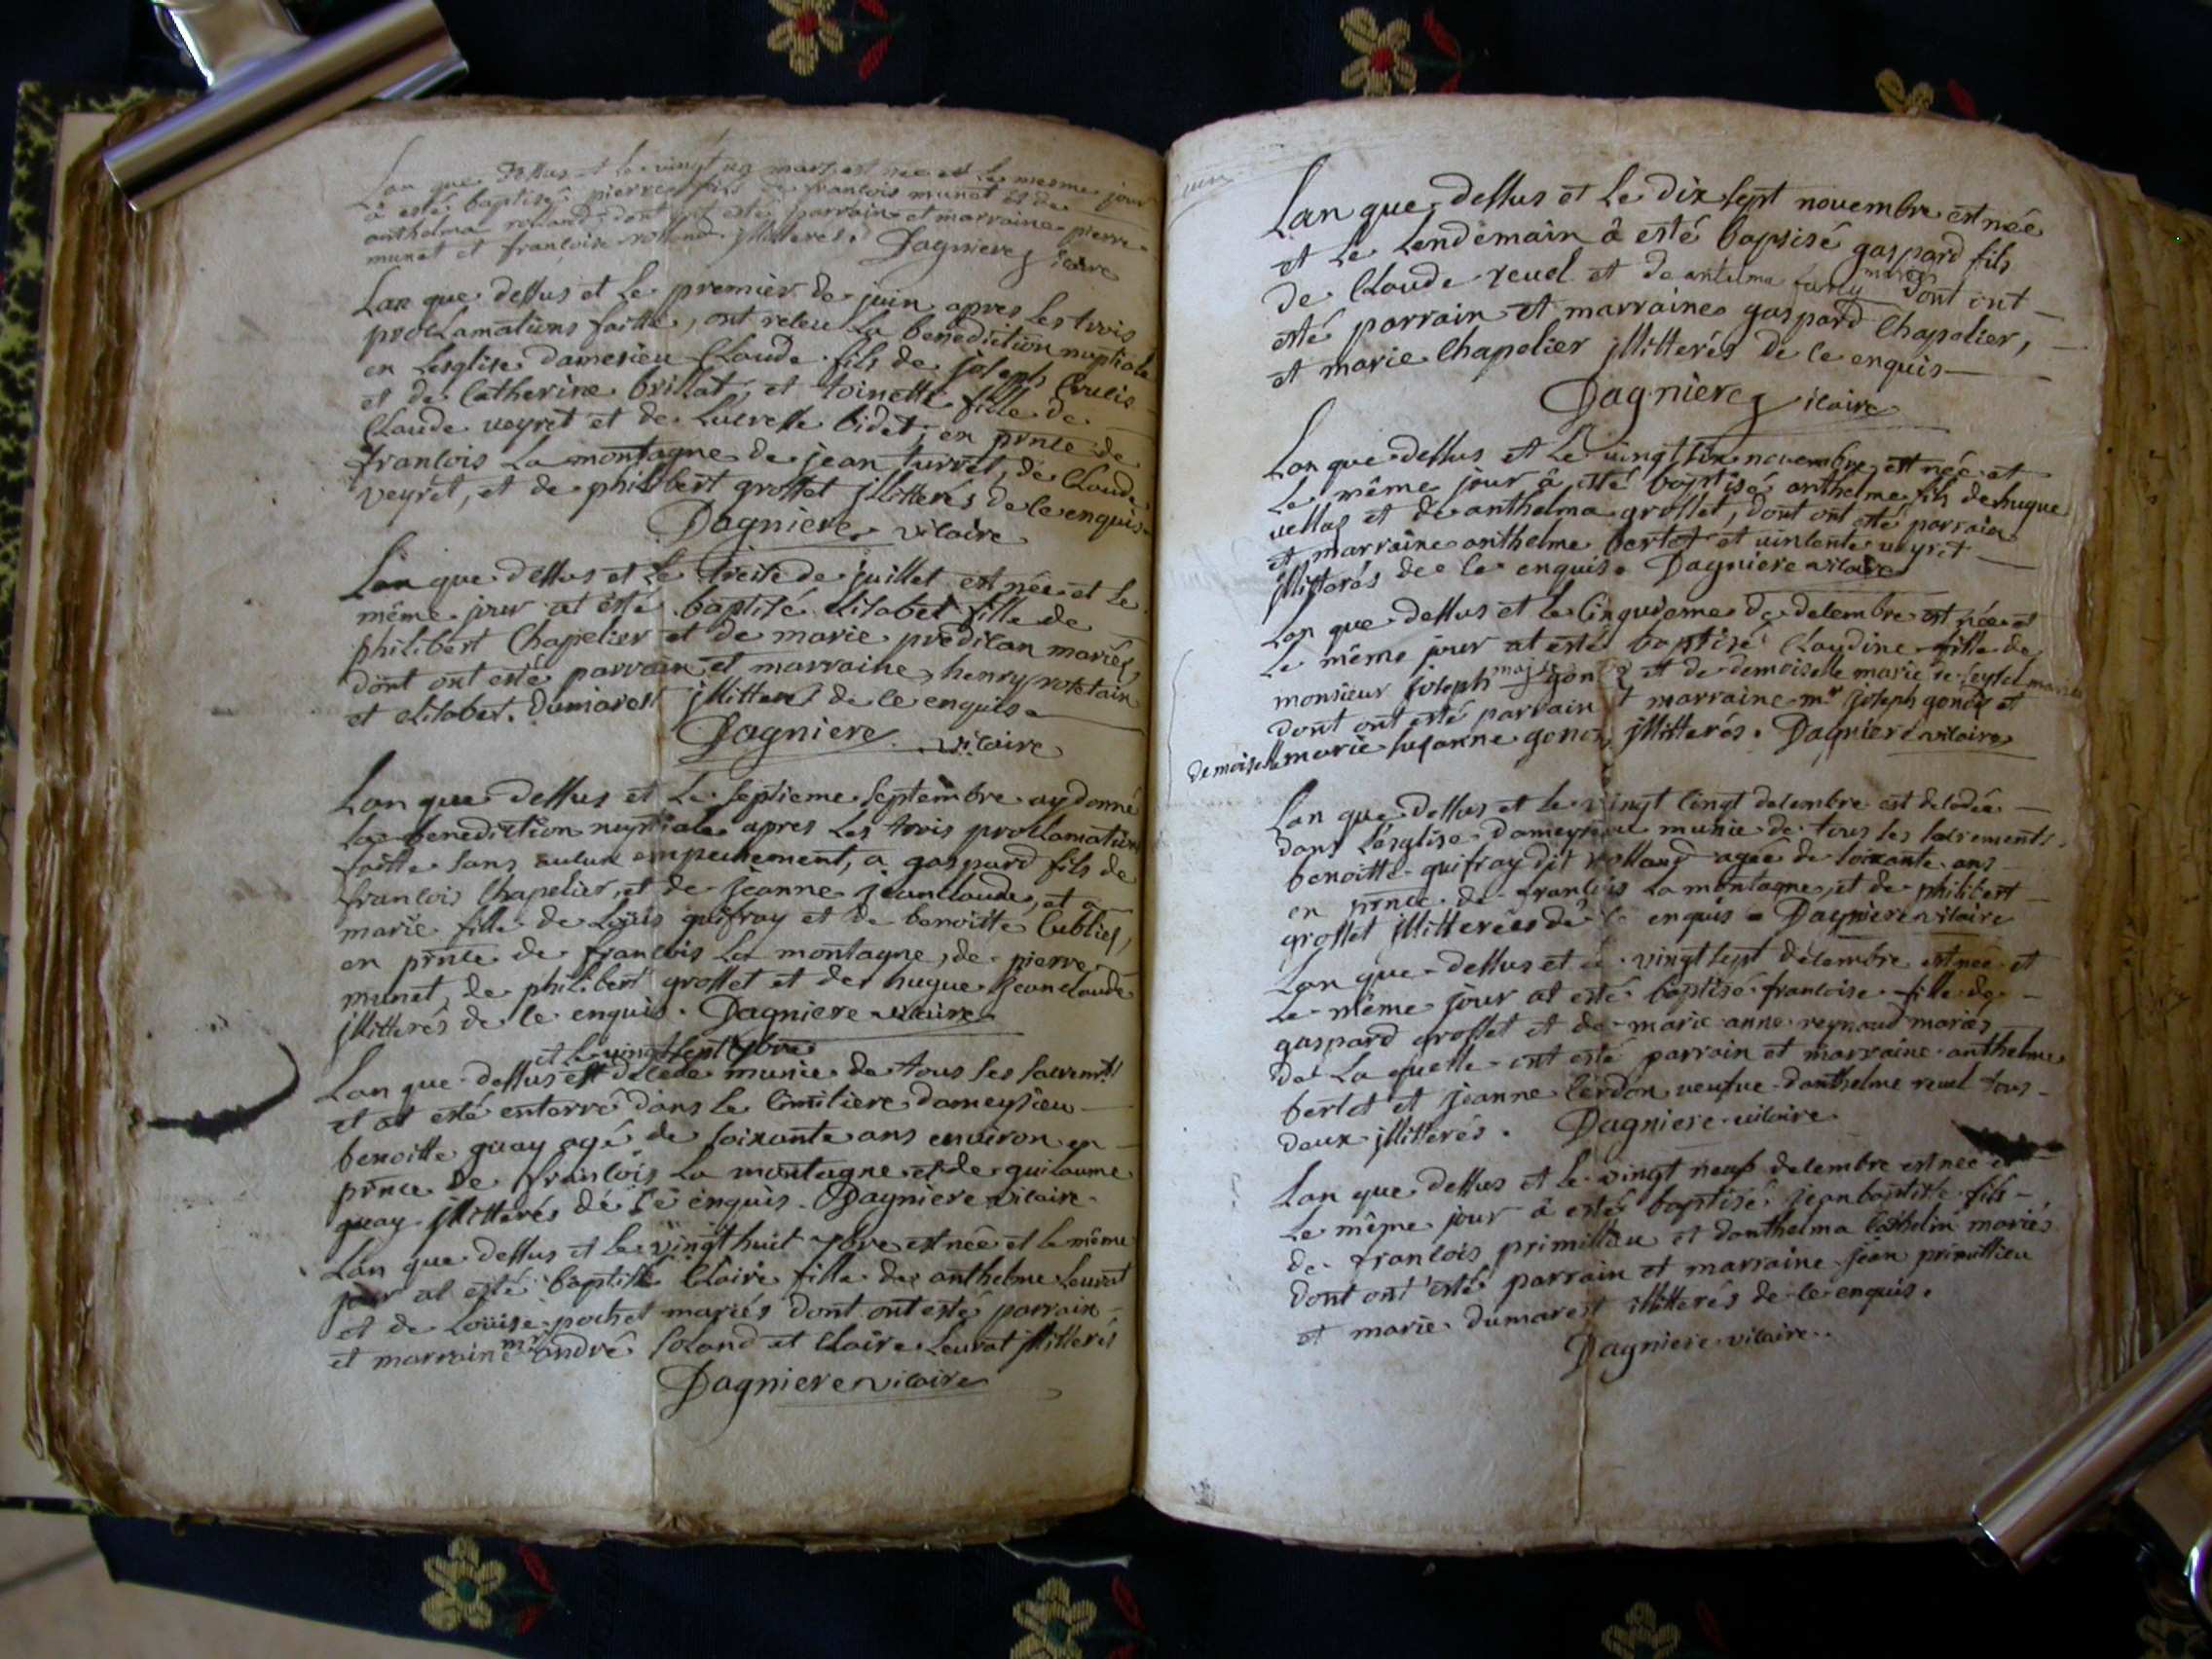 Lan que dessus et le vingt un mars est née et le mesme jour
à esté baptisé pierre fils de francois munet et de
anthelma rolland dont ont esté parrain et marraine pierre
munet et francoise rolland jllitteres. Dagniere vicaire
Lan que dessus et le premier de juin apres les trois
proclamations faitte, ont receu la benediction nuptiale
en lesglise damesieu Claude fils de joseph Crucis
et de Catherine brillat, et toinette fille de
Claude veyret et de Lucresse bidet, en pnce de
francois La montagne de jean turret, de Claude
veyret, et de philibert grosset jllitterés de ce enquis
Dagniere vicaire
Lan que dessus et le treise de juillet est née et le
même jour at esté baptisé elisabet fille de
philibert Chapelier et de marie predican mariés
dont ont esté parrain et marraine henry rostain
et elisabet dumarest jllitteres de ce enquis
Dagniere vicaire
Lan que dessus et le septieme septembre ay donné
la benediction nuptiale apres les trois proclamations
faitte sans aucun empechement, a gaspard fils de
francois Chapelier, et de jeanne jeanclaude, et a
marie fille de Loüis guifray et de benoitte Cubliel,
en pnce de francois La montagne, de pierre
munet, de philibert grosset et de hugue jeanclaude
jllitterés de ce enquis. Dagniere vicaire
et le vingt sept 7bre
Lan que dessus est decede munie de tous ses sacremts
et at esté enterré dans le Cimitiere dameysieu
benoitte guay agé de soixante ans environ en
pnce de francois La montagne et de guilaume
guay jllitterés de ce enquis. Dagniere vicaire
Lan que dessus et le vingt huit 7bre est née et le même
jour at esté baptisée Claire fille de anthelme Leurat
et de Loüise pochet mariés dont ont esté parrain
et marraine mr andré Coland et Claire Leurat jllitterés
Dagniere vicaire
Lan que dessus et le dix sept novembre est née
et le lendemain â esté baptisé gaspard fils
de Claude reuel et de antelma mariés dont ont
esté parrain et marraine gaspard Chapelier,
et marie Chapelier jllitterés de ce enquis
Dagniere vicaire
Lan que dessus et le vingt six novembre est née et
le même jour â esté baptisé anthelme fils de hugue
vellas et de anthelma grosset, dont ont esté parrain
et marraine anthelme bertet et vincente veyret
jllitterés de ce enquis. Dagniere vicaire
Lan que dessus et le Cinquieme de decembre est née et
le même jour at esté baptisé Claudine fille de
monsieur joseph marie gonet et de demoiselle marie de seyssel mariés
dont ont esté parrain et marraine mr joseph gonet et
demoiselle marie susanne gonet jllitterés. Dagniere vicaire
Lan que dessus et le vingt cinq decembre est decedée
dans lésglise dameysieu munie de tous les sacrements
benoitte guifray dit rolland agée de soixante ans
en pnce de francois La montagne, et de philibert
grosset jllitterées de ce enquis Dagniere vicaire
Lan que dessus et le vingt sept décembre est née et
le même jour at esté baptisé francoise fille de
gaspard grosset et de marie anne reynaud mariés
de La quelle ont esté parrain et marraine anthelme
bertet et jeanne Cerdon veufve danthelme reuel tous
deux jllitterés. Dagniere vicaire
Lan que dessus et le vingt neuf decembre est née et
le même jour â esté baptisé jean baptiste fils
de francois primillieu et danthelma berthelin mariés
dont ont esté parrain et marraine jean primillieu
et marie dumarest jllitterés de ce enquis.
Dagniere vicaire